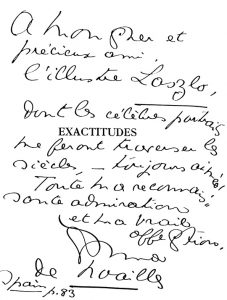 A mon cher et
précieux ami,
l'illustre Laszlo,
dont les célèbres portraits
EXACTITUDES
me feront traverser les
siècles, — toujours
Toute ma reconnais-
sante admiration
et ma vraie
affection,
Anna
de Noailles
Spain p. 83